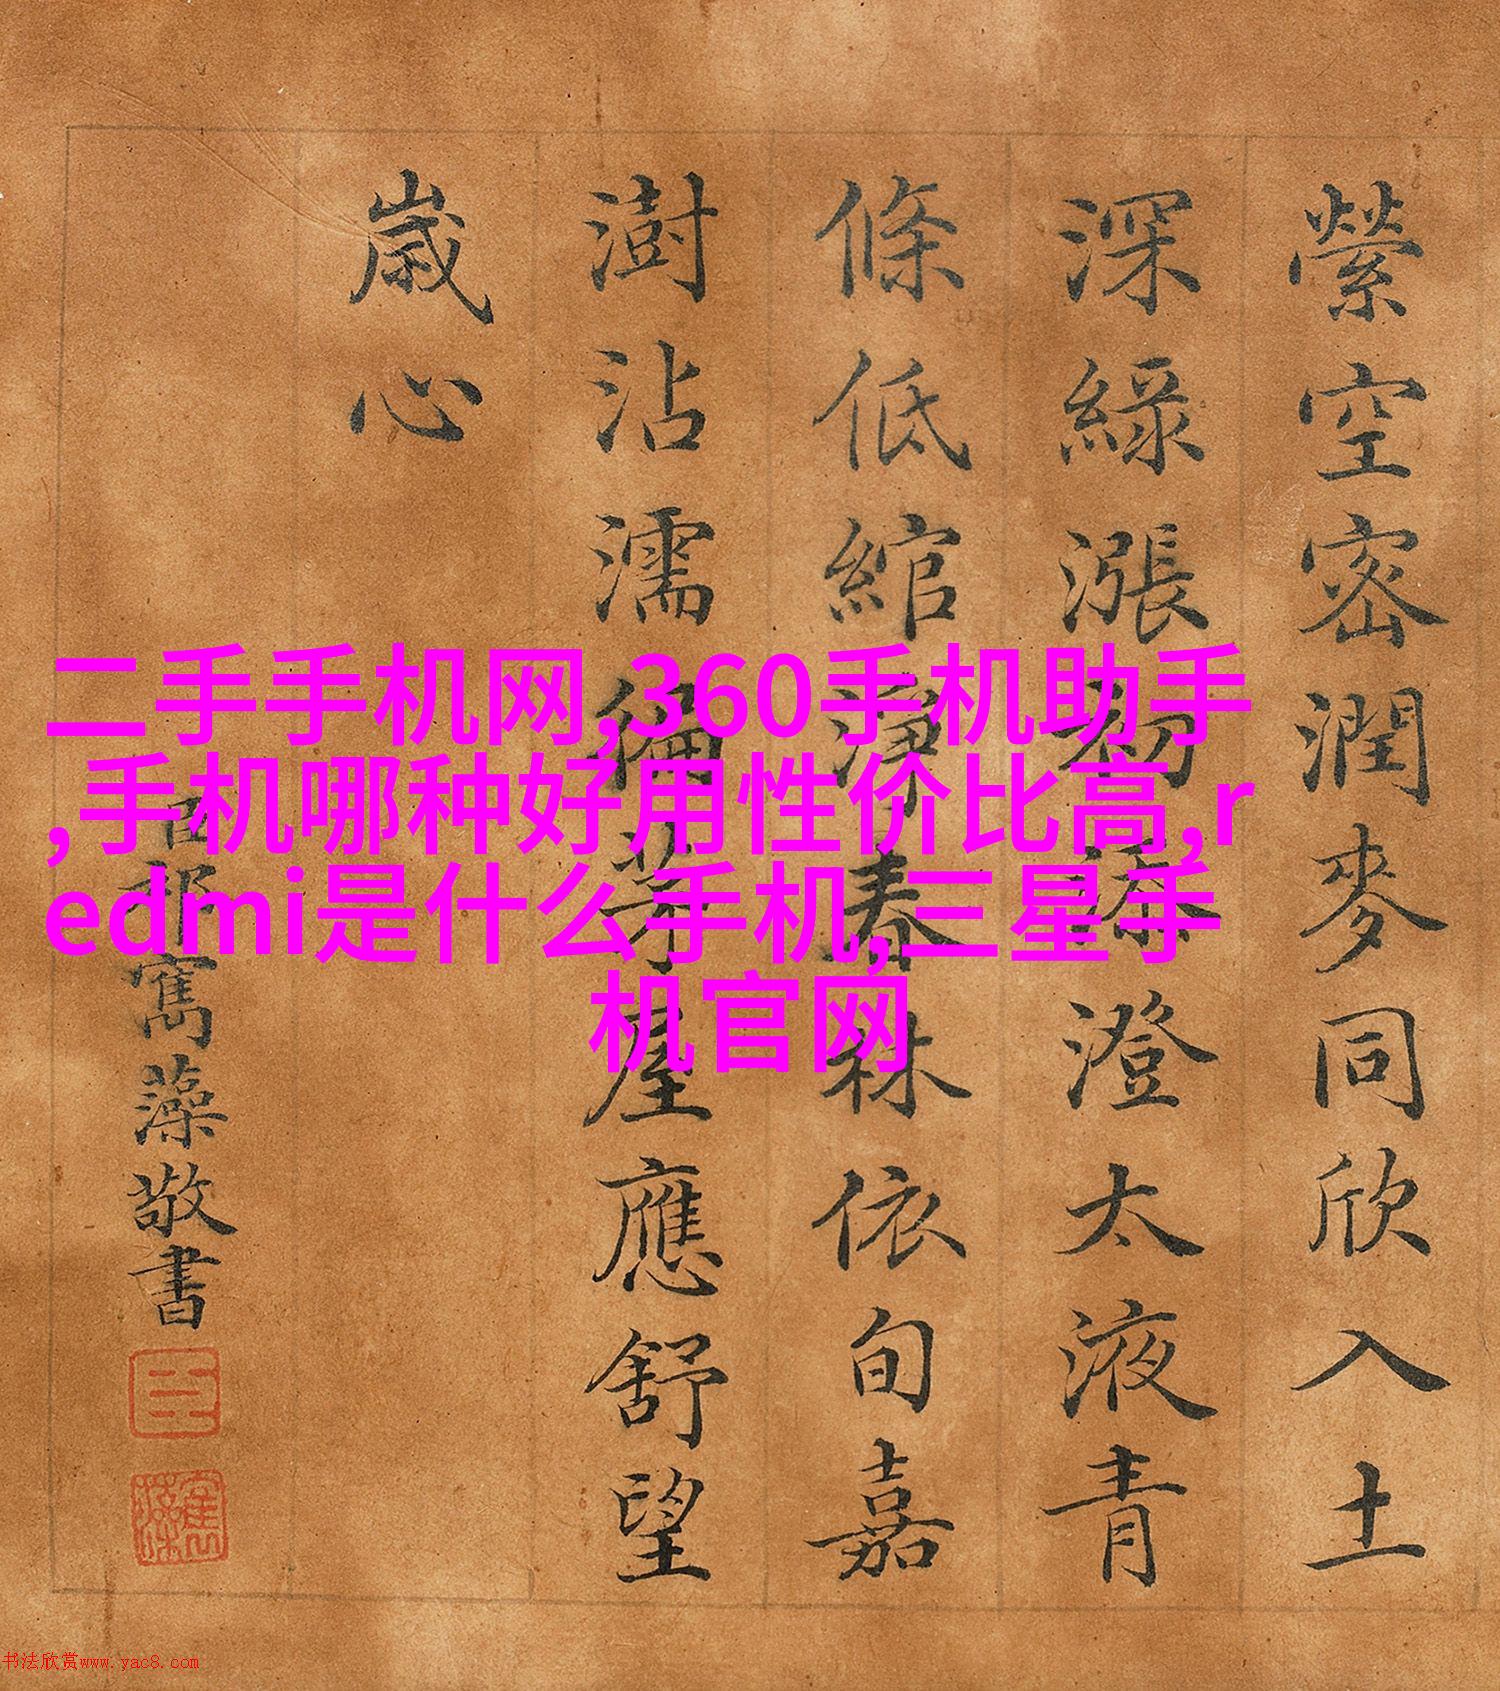 縈空密潤麥同欣入土
深綠漲初添澄太液青
條低綰淨春依旬嘉
澍沾濡徧茅屋應舒望
歲心
臣祁寯藻敬書
臣
寯藻
二手手机网,360手机助手
,手机哪种好用性价比高,r
edmi是什么手机,三星手
机官网
书法欣赏www.yac8.com